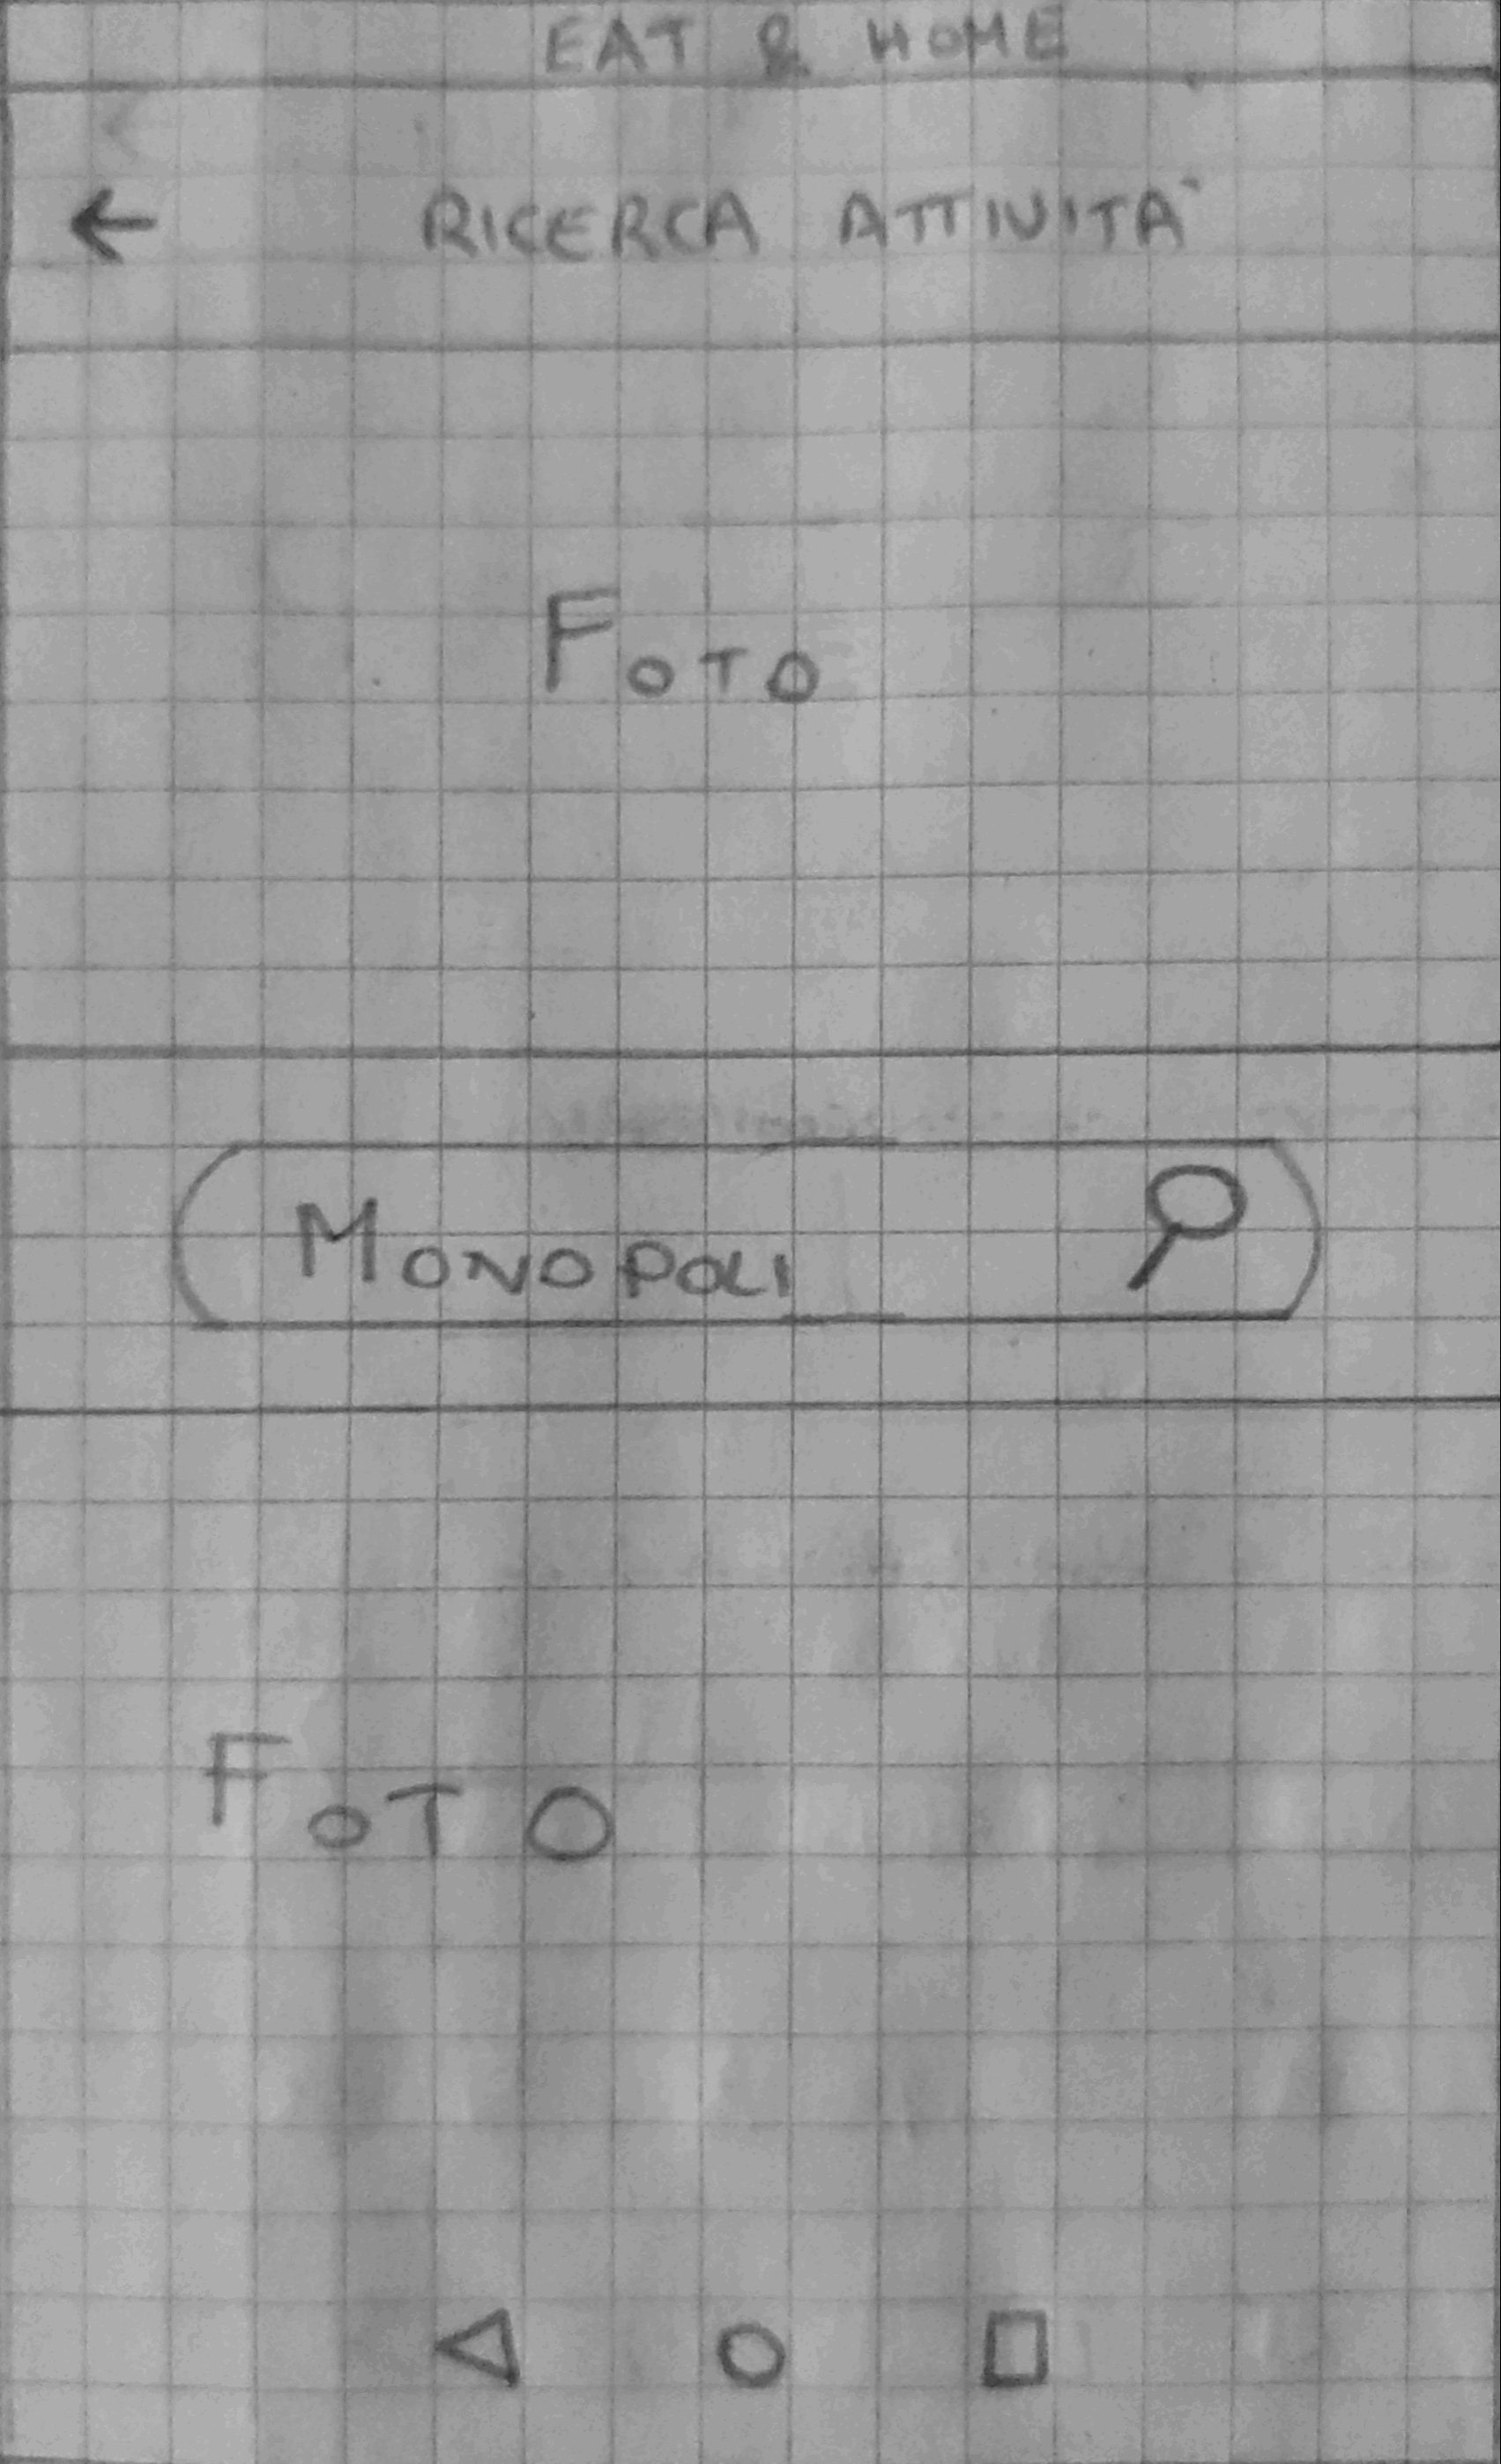 EAT & HOME
RICERCA ATTIVITÀ
FOTO
MONOPOLI
FOTO